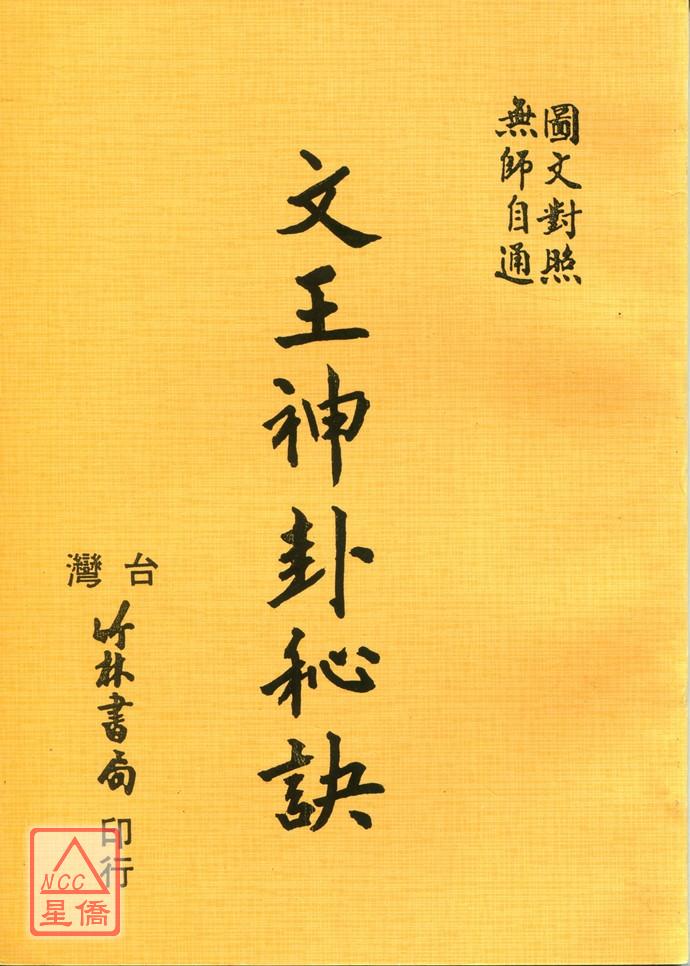 圖文對照
無師自通
文王神卦秘訣
台灣
竹林書局
印行
NCC
星僑